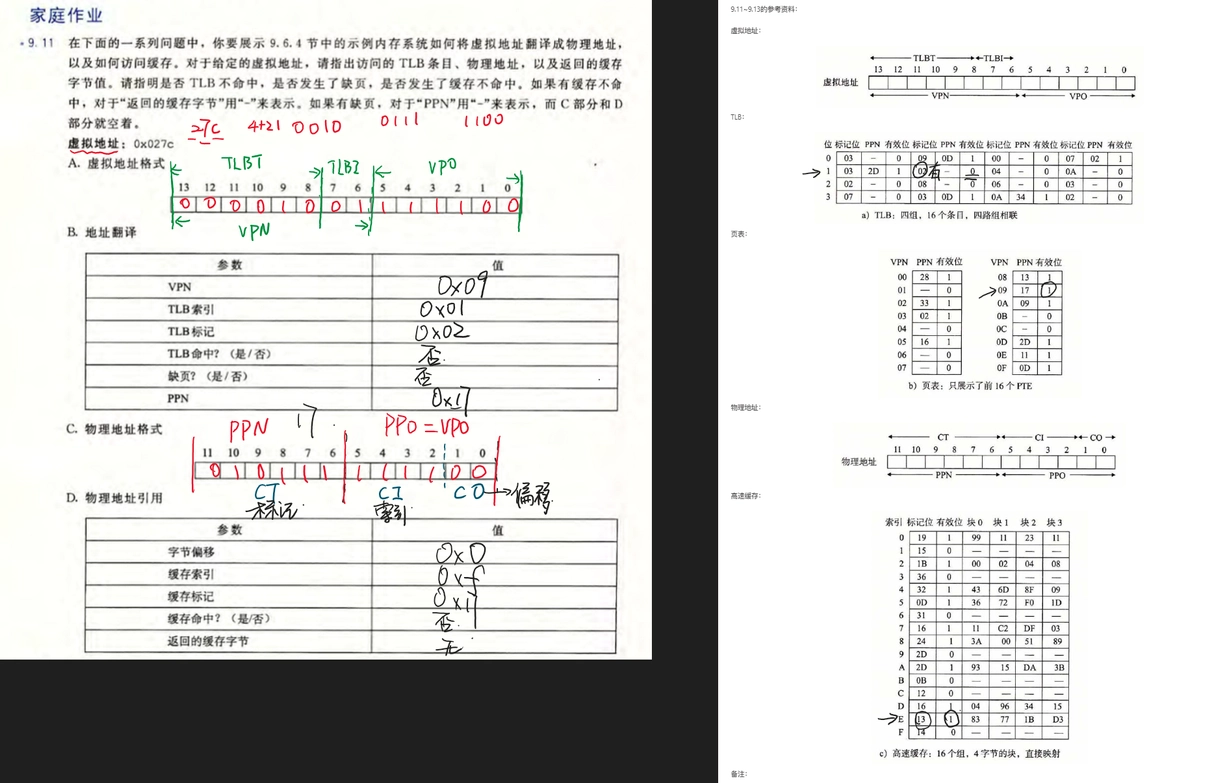 家庭作业
9.11 在下面的一系列问题中，你要展示 9.6.4 节中的示例内存系统如何将虚拟地址翻译成物理地址，
以及如何访问缓存。对于给定的虚拟地址，请指出访问的 TLB 条目、物理地址，以及返回的缓存
字节值。请指明是否 TLB 不命中，是否发生了缺页，是否发生了缓存不命中。如果有缓存不命
中，对于“返回的缓存字节”用“-”来表示。如果有缺页，对于“PPN”用“-”来表示，而 C 部分和 D
部分就空着。
27C 4+21 0010 0111 1100
虚拟地址：0x027c
A. 虚拟地址格式
TLBT TLBI VPO
13 12 11 10 9 8 7 6 5 4 3 2 1 0
0 0 0 0 1 0 0 1 1 1 1 1 0 0
VPN
B. 地址翻译
参数 值
VPN 0x09
TLB 索引 0x01
TLB 标记 0x02
TLB 命中？（是/否） 否
缺页？（是/否） 否
PPN 0x17
C. 物理地址格式
PPN 17 PPO=VPO
11 10 9 8 7 6 5 4 3 2 1 0
0 1 0 1 1 1 1 1 1 1 0 0
CT CI CO→偏移
标记 索引
D. 物理地址引用
参数 值
字节偏移 0x0
缓存索引 0xf
缓存标记 0x17
缓存命中？（是/否） 否
返回的缓存字节 无
9.11~9.13的参考资料：
虚拟地址：
TLBT TLBI
13 12 11 10 9 8 7 6 5 4 3 2 1 0
虚拟地址
VPN VPO
TLB：
位 标记位 PPN 有效位 标记位 PPN 有效位 标记位 PPN 有效位 标记位 PPN 有效位
0 03 – 0 09 0D 1 00 – 0 07 02 1
1 03 2D 1 02 有 – 0 04 – 0 0A – 0
2 02 – 0 08 – 0 06 – 0 03 – 0
3 07 – 0 03 0D 1 0A 34 1 02 – 0
a）TLB：四组，16 个条目，四路组相联
页表：
VPN PPN 有效位 VPN PPN 有效位
00 28 1 08 13 1
01 — 0 09 17 1
02 33 1 0A 09 1
03 02 1 0B – 0
04 — 0 0C – 0
05 16 1 0D 2D 1
06 — 0 0E 11 1
07 — 0 0F 0D 1
b）页表：只展示了前 16 个 PTE
物理地址：
CT CI CO
11 10 9 8 7 6 5 4 3 2 1 0
物理地址
PPN PPO
高速缓存：
索引 标记位 有效位 块 0 块 1 块 2 块 3
0 19 1 99 11 23 11
1 15 0 — — — —
2 1B 1 00 02 04 08
3 36 0 — — — —
4 32 1 43 6D 8F 09
5 0D 1 36 72 F0 1D
6 31 0 — — — —
7 16 1 11 C2 DF 03
8 24 1 3A 00 51 89
9 2D 0 — — — —
A 2D 1 93 15 DA 3B
B 0B 0 — — — —
C 12 0 — — — —
D 16 1 04 96 34 15
E 13 1 83 77 1B D3
F 14 0 — — — —
c）高速缓存：16 个组，4 字节的块，直接映射
备注：